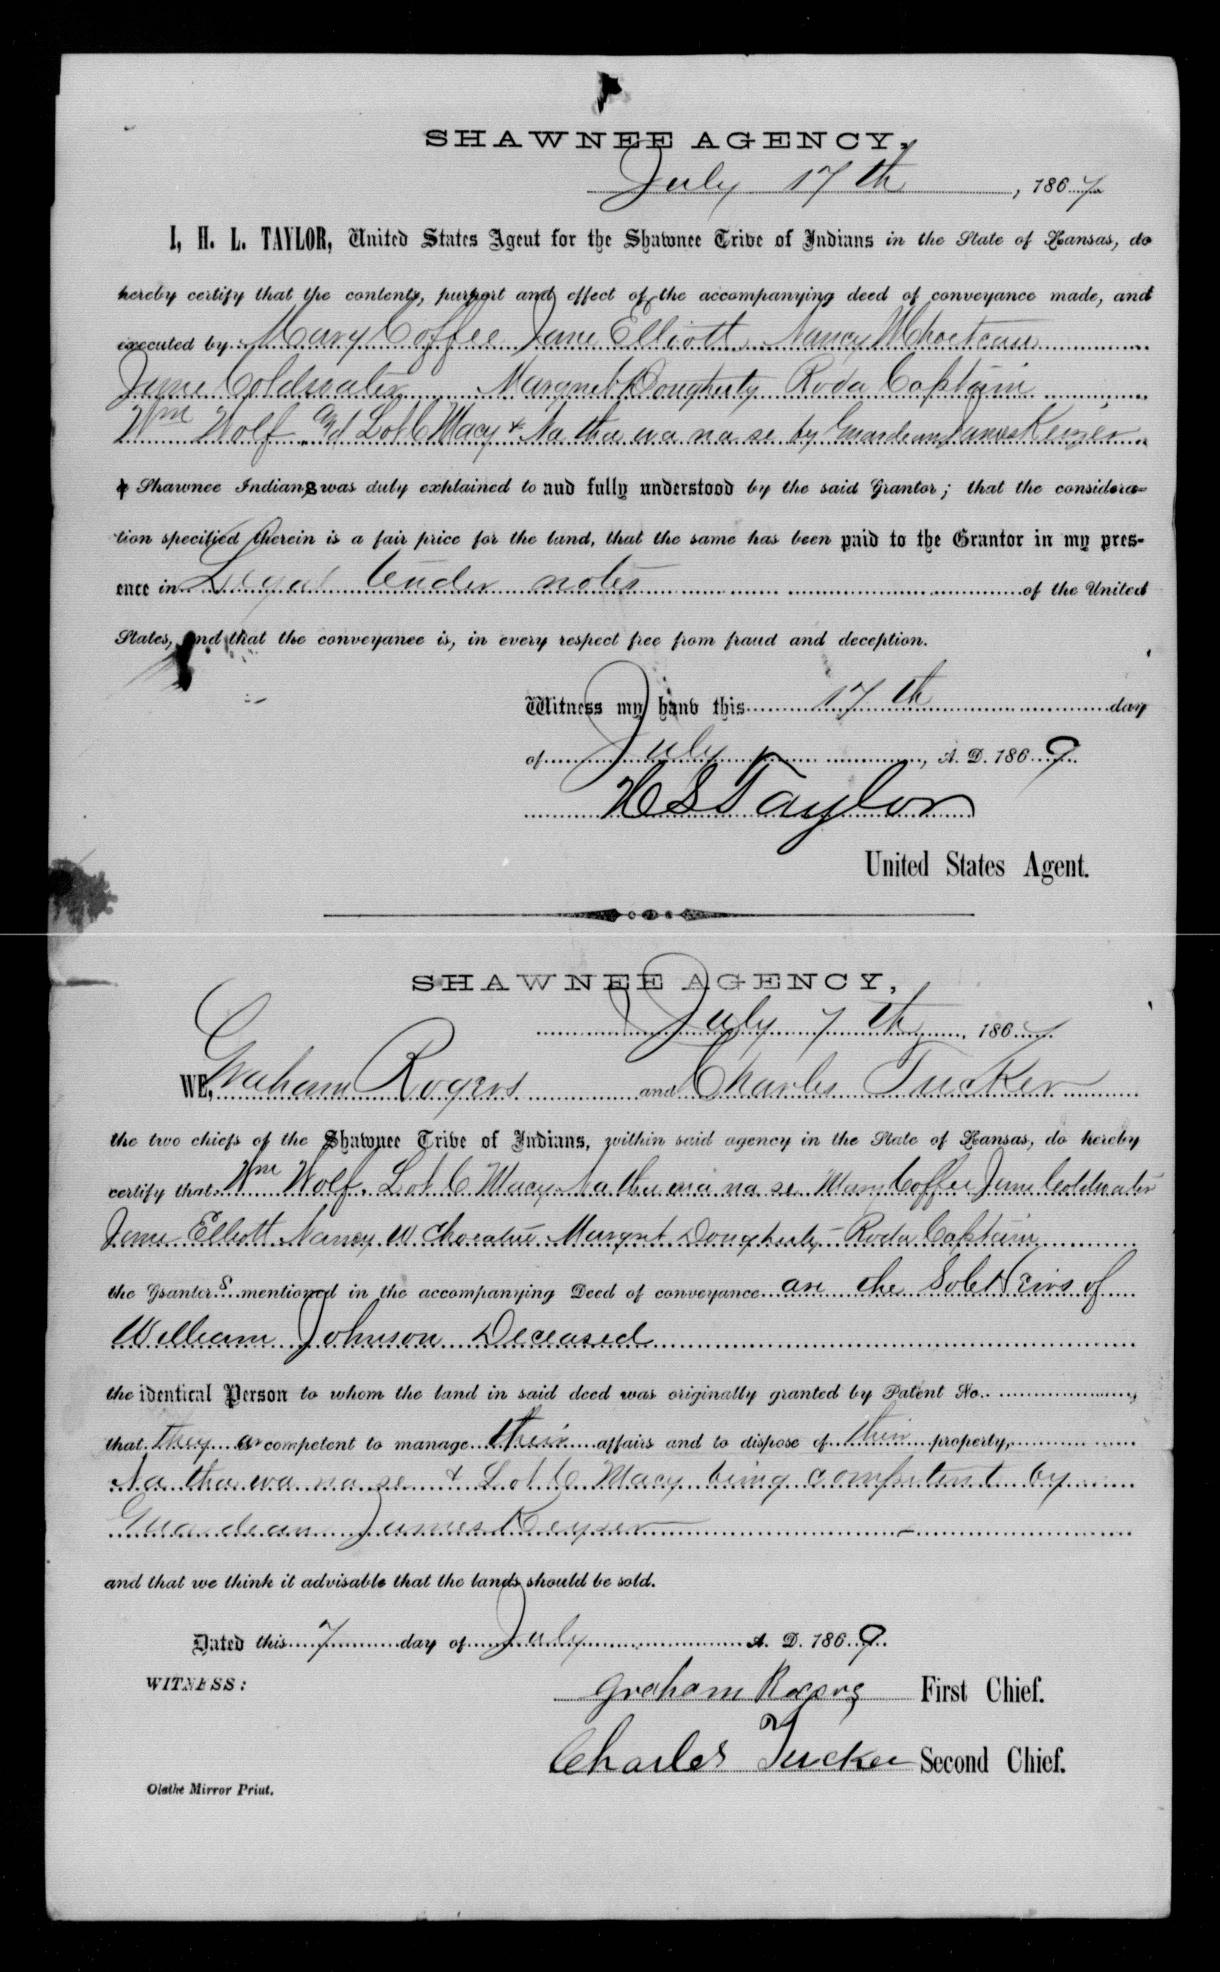 SHAWNEE AGENCY,
July 17th, 1867
I, H. L. TAYLOR, United States Agent for the Shawnee Tribe of Indians in the State of Kansas, do
hereby certify that the contents, purport and effect of the accompanying deed of conveyance made, and
executed by Mary Coffee Jane Elliott Nancy W Chouteau
Jane Coldwater Margret Dougherty Roda Captain
Wm Wolf and Lot C Macy & Na tha wa na se by Guardian James Keizer
Shawnee Indians was duly explained to and fully understood by the said Grantor; that the considera-
tion specified therein is a fair price for the land, that the same has been paid to the Grantor in my pres-
ence in Legal tender notes of the United
States, and that the conveyance is, in every respect free from fraud and deception.
Witness my hand this 17th day
of July, A. D. 1869
H L Taylor
United States Agent.
SHAWNEE AGENCY,
July 7th, 1867
WE, Graham Rogers and Charles Tucker
the two chiefs of the Shawnee Tribe of Indians, within said agency in the State of Kansas, do hereby
certify that Wm Wolf. Lot C Macy Na tha wa na se Mary Coffee Jane Coldwater
Jane Elliott Nancy W Choeatue Margret Dougherty Roda Captain
the Grantors mentioned in the accompanying Deed of conveyance are the Sole Heirs of
William Johnson Deceased
the identical Person to whom the land in said deed was originally granted by Patent No.
that they are competent to manage their affairs and to dispose of their property,
Na tha wa na se & Lot C Macy being competent by
Guardean James Keyser
and that we think it advisable that the lands should be sold.
Dated this 7 day of July A. D. 1869.
WITNESS:
Graham Rogers First Chief.
Charles Tucker Second Chief.
Olathe Mirror Print.